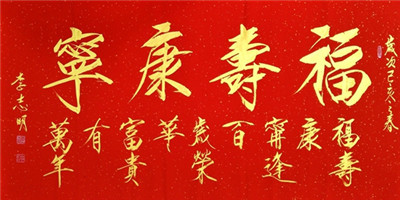 歲次己亥春
福壽康寧
福壽
康
寧逢
百
歲榮
華
富貴
有
萬年
李志明